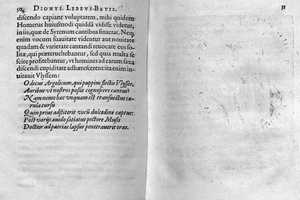 DIONYS. LEBEVS-BATIL.
discendo capiant voluptatem, mihi quidem
Homerus huiusmodi quiddã vidisse videtur,
in iis, quæ de Syrenum cantibus finxit. Neq;
enim vocum suauitate videntur aut nouitate
quadam & varietate cantandi reuocare eos so-
litæ, qui præteruehebantur, sed quia multa se
scire profitebantur, vt homines ad earum saxa
discendi cupiditate adhærescerent ita enim in-
uitant Vlyssem:
O decus Argolicum, quin puppim flectis Vlysses,
Auribus vt nostros possis cognoscere cantus?
Nam nemo hæc vnquam est transuectus cæ-
rula cursu
Quin prius adstiterit vocũ dulcedine captus,
Post varijs auido satiatus pectore Musis
Doctior ad patrias lapsus peruenerit oras.